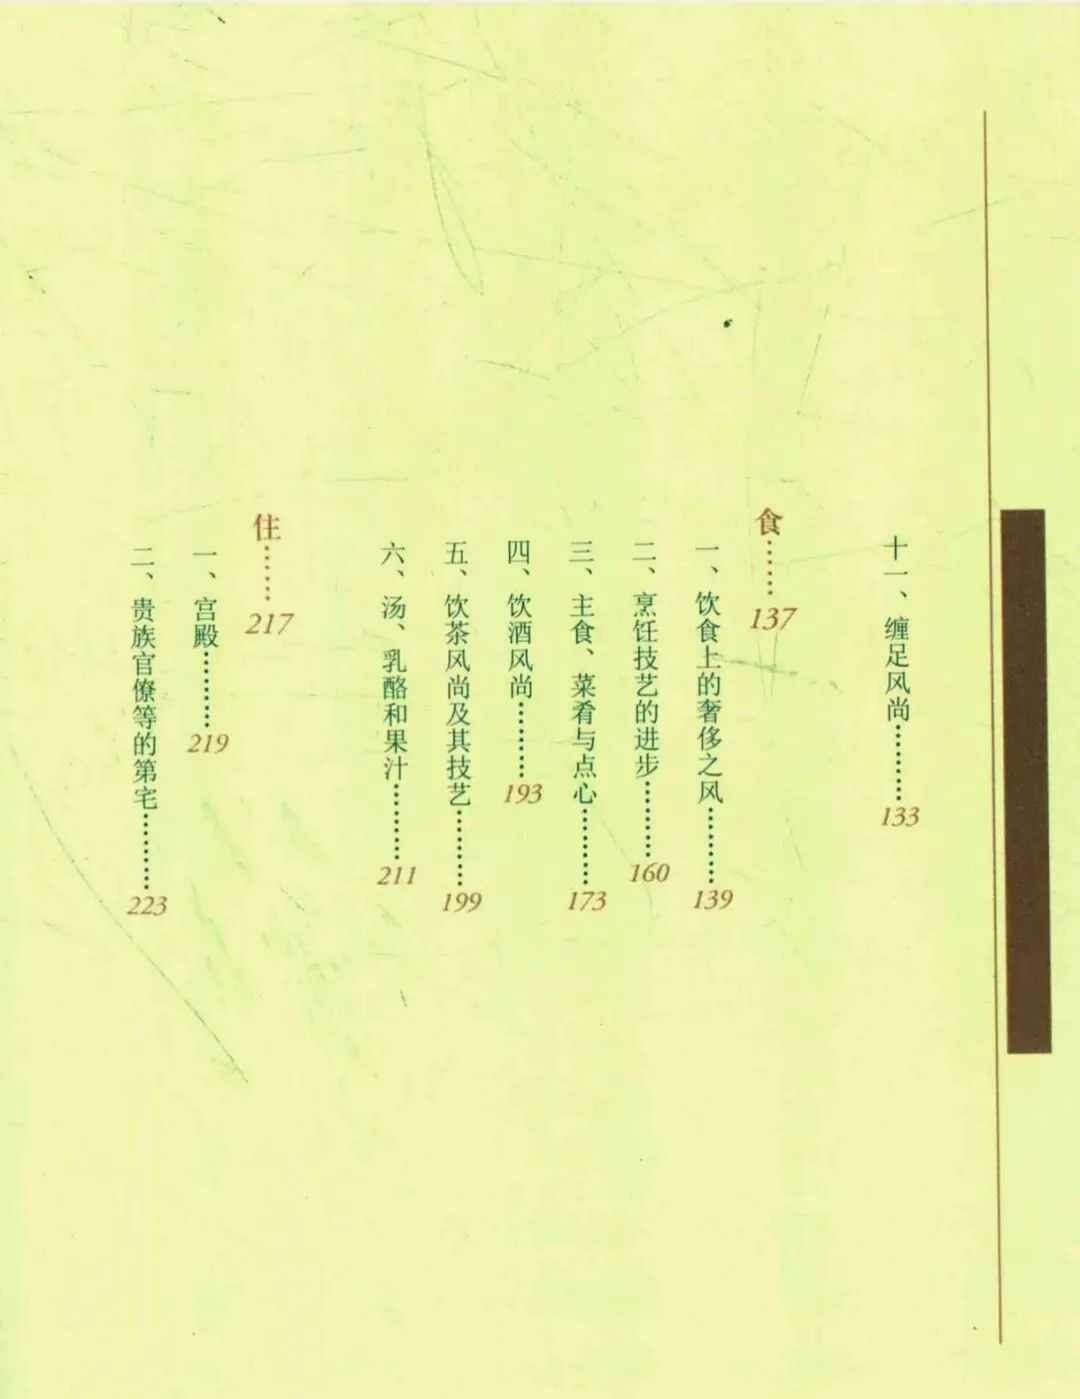 十一、缠足风尚………133
食……137
一、饮食上的奢侈之风………139
二、烹饪技艺的进步………160
三、主食、菜肴与点心………173
四、饮酒风尚………193
五、饮茶风尚及其技艺………199
六、汤、乳酪和果汁………211
住……217
一、宫殿………219
二、贵族官僚等的第宅………223